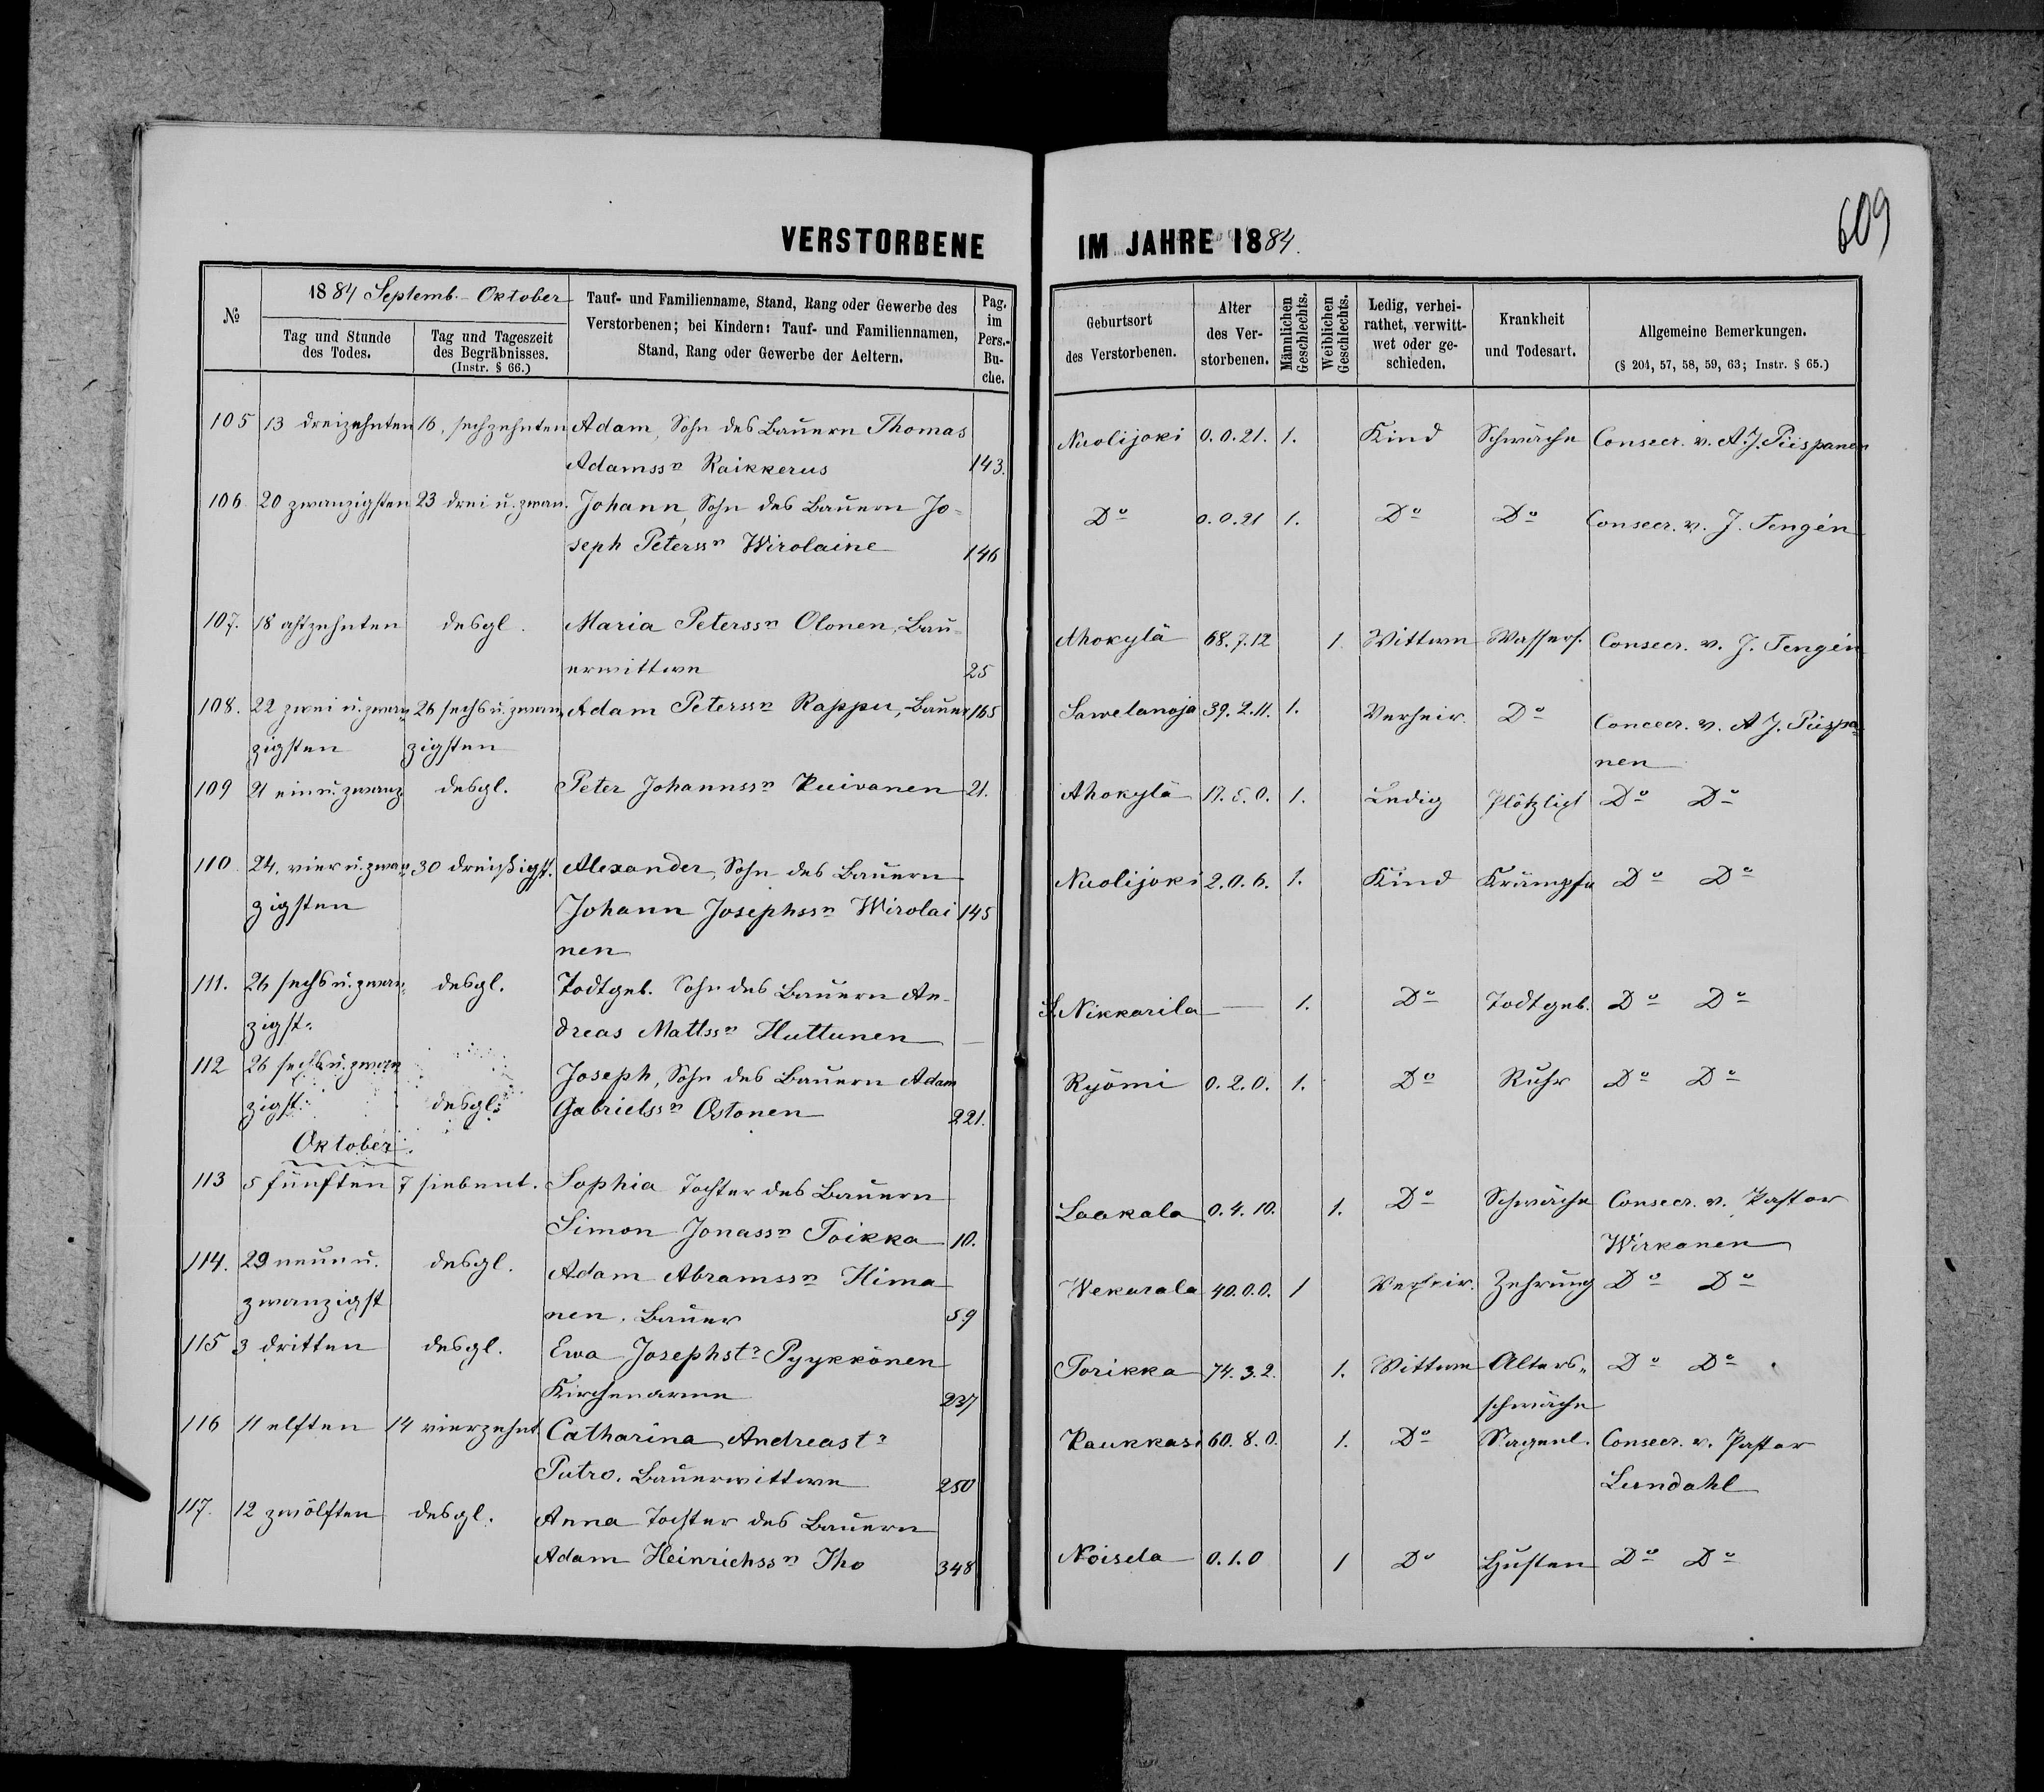 609
VERSTORBENE IM JAHRE 1884.
№
1884 Septemb. - Oktober
Tag und Stunde des Todes.
Tag und Tageszeit des Begräbnisses. (Instr. § 66.)
Tauf- und Familienname, Stand, Rang oder Gewerbe des Verstorbenen; bei Kindern: Tauf- und Familiennamen, Stand, Rang oder Gewerbe der Aeltern.
Pag. im Pers.-Buche.
Geburtsort des Verstorbenen.
Alter des Verstorbenen.
Männlichen Geschlechts.
Weiblichen Geschlechts.
Ledig, verheirathet, verwittwet oder geschieden.
Krankheit und Todesart.
Allgemeine Bemerkungen.
(§ 204, 57, 58, 59, 63; Instr. § 65.)
105 13 dreizehnten 16, sechzehnten Adam, Sohn des Bauern Thomas
Adamssn Raikkerus 143.
Nuolijoki 0.0.21. 1. Kind Schwäche Consecr. v. A. J. Piispanen
106 20 zwanzigsten 23 drei u. zwan. Johann, Sohn des Bauern Jo-
seph Peterssn Wirolaine 146
Do 0.0.21 1. Do Do Consecr. v. J. Tengén
107. 18 achtzehnten desgl. Maria Peterssn Olonen, Bau-
erwittwe 25
Ahokylä 68.7.12 1. Wittwe Wassers. Consecr. v. J. Tengén
108. 22 zwei u. zwan- 26 sechs u. zwan- Adam Peterssn Rappu, Bauer 165
zigsten zigsten
Sawelanoja 39.2.11. 1. Verheir. Do Concecr. v. A J. Piispa-
nen
109 21 ein u. zwanz desgl. Peter Johannssn Kuivanen 21.
Ahokylä 17.5.0. 1. Ledig Plötzlich Do Do
110 24. vier u. zwan- 30 dreißigst. Alexander, Sohn des Bauern
zigsten Johann Josephssn Wirolai 145
nen
Nuolijoki 2.0.6. 1. Kind Krämpfe Do Do
111. 26 sechs u. zwan- desgl. Todtgeb. Sohn des Bauern An-
zigst. dreas Mattssn Huttunen —
S. Nikkarila — 1. Do Todtgeb. Do Do
112 26 sechs u. zwan Joseph, Sohn des Bauern Adam
zigst. desgl. Gabrielssn Ostonen 221.
Ryömi 0.2.0. 1. Do Ruhr Do Do
Oktober.
113 5 fünften 7 siebent. Sophia Tochter des Bauern
Simon Jonassn Toikka 10.
Laakala 0.4.10. 1. Do Schwäche Consecr. v. Pastor
Wirkonen
114. 29 neun u. desgl. Adam Abramssn Hima
zwanzigst nen. Bauer 59
Wekarala 40.0.0. 1 Verheir. Zehrung Do Do
115 3 dritten desgl. Ewa Josephstr Pyykkönen
Kirchenarme 237
Torikka 74.3.2. 1. Wittwe Alters-
schwäche Do Do
116 11 elften 14 vierzehnt. Catharina Andreastr
Putro. Bauerwittwe 250
Kaukkasi 60.8.0. 1. Do Consecr. v. Pastor
Lundahl
117. 12 zwölften desgl. Anna Tochter des Bauern
Adam Heinrichssn Iho 348
Noisela 0.1.0 1 Do Husten Do Do